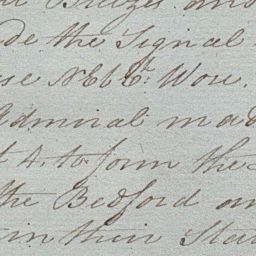 Breezes and
de the Signal
se NEbEt. Wore.
Admiral mad
t 4 to form the
the Bedford an
in their Stat